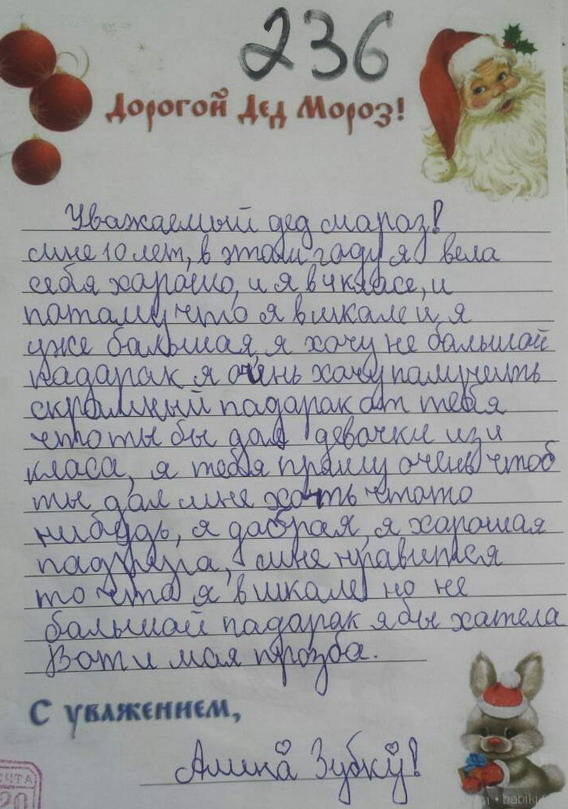 236
Дорогой Дед Мороз!
Уважаемый дед мароз!
мне 10 лет, в этом году я вела
себя харашо, и я в 4 класе, и
патаму что я в шкале и я
уже балшая, я хочу не балшой
падарак я очень хочу палучить
скромный падарак от тебя
что ты бы дал девачки из 4
класа, я тебя прашу очень чтоб
ты дал мне хать чтото
нибудь, я добрая, я харошая
падруга, мне нравится
то что я в шкале но не
балшой падарак я бы хатела
Вот и моя прозба.
С уважением,
Алина Зубку!
ЧТА
20
babiki